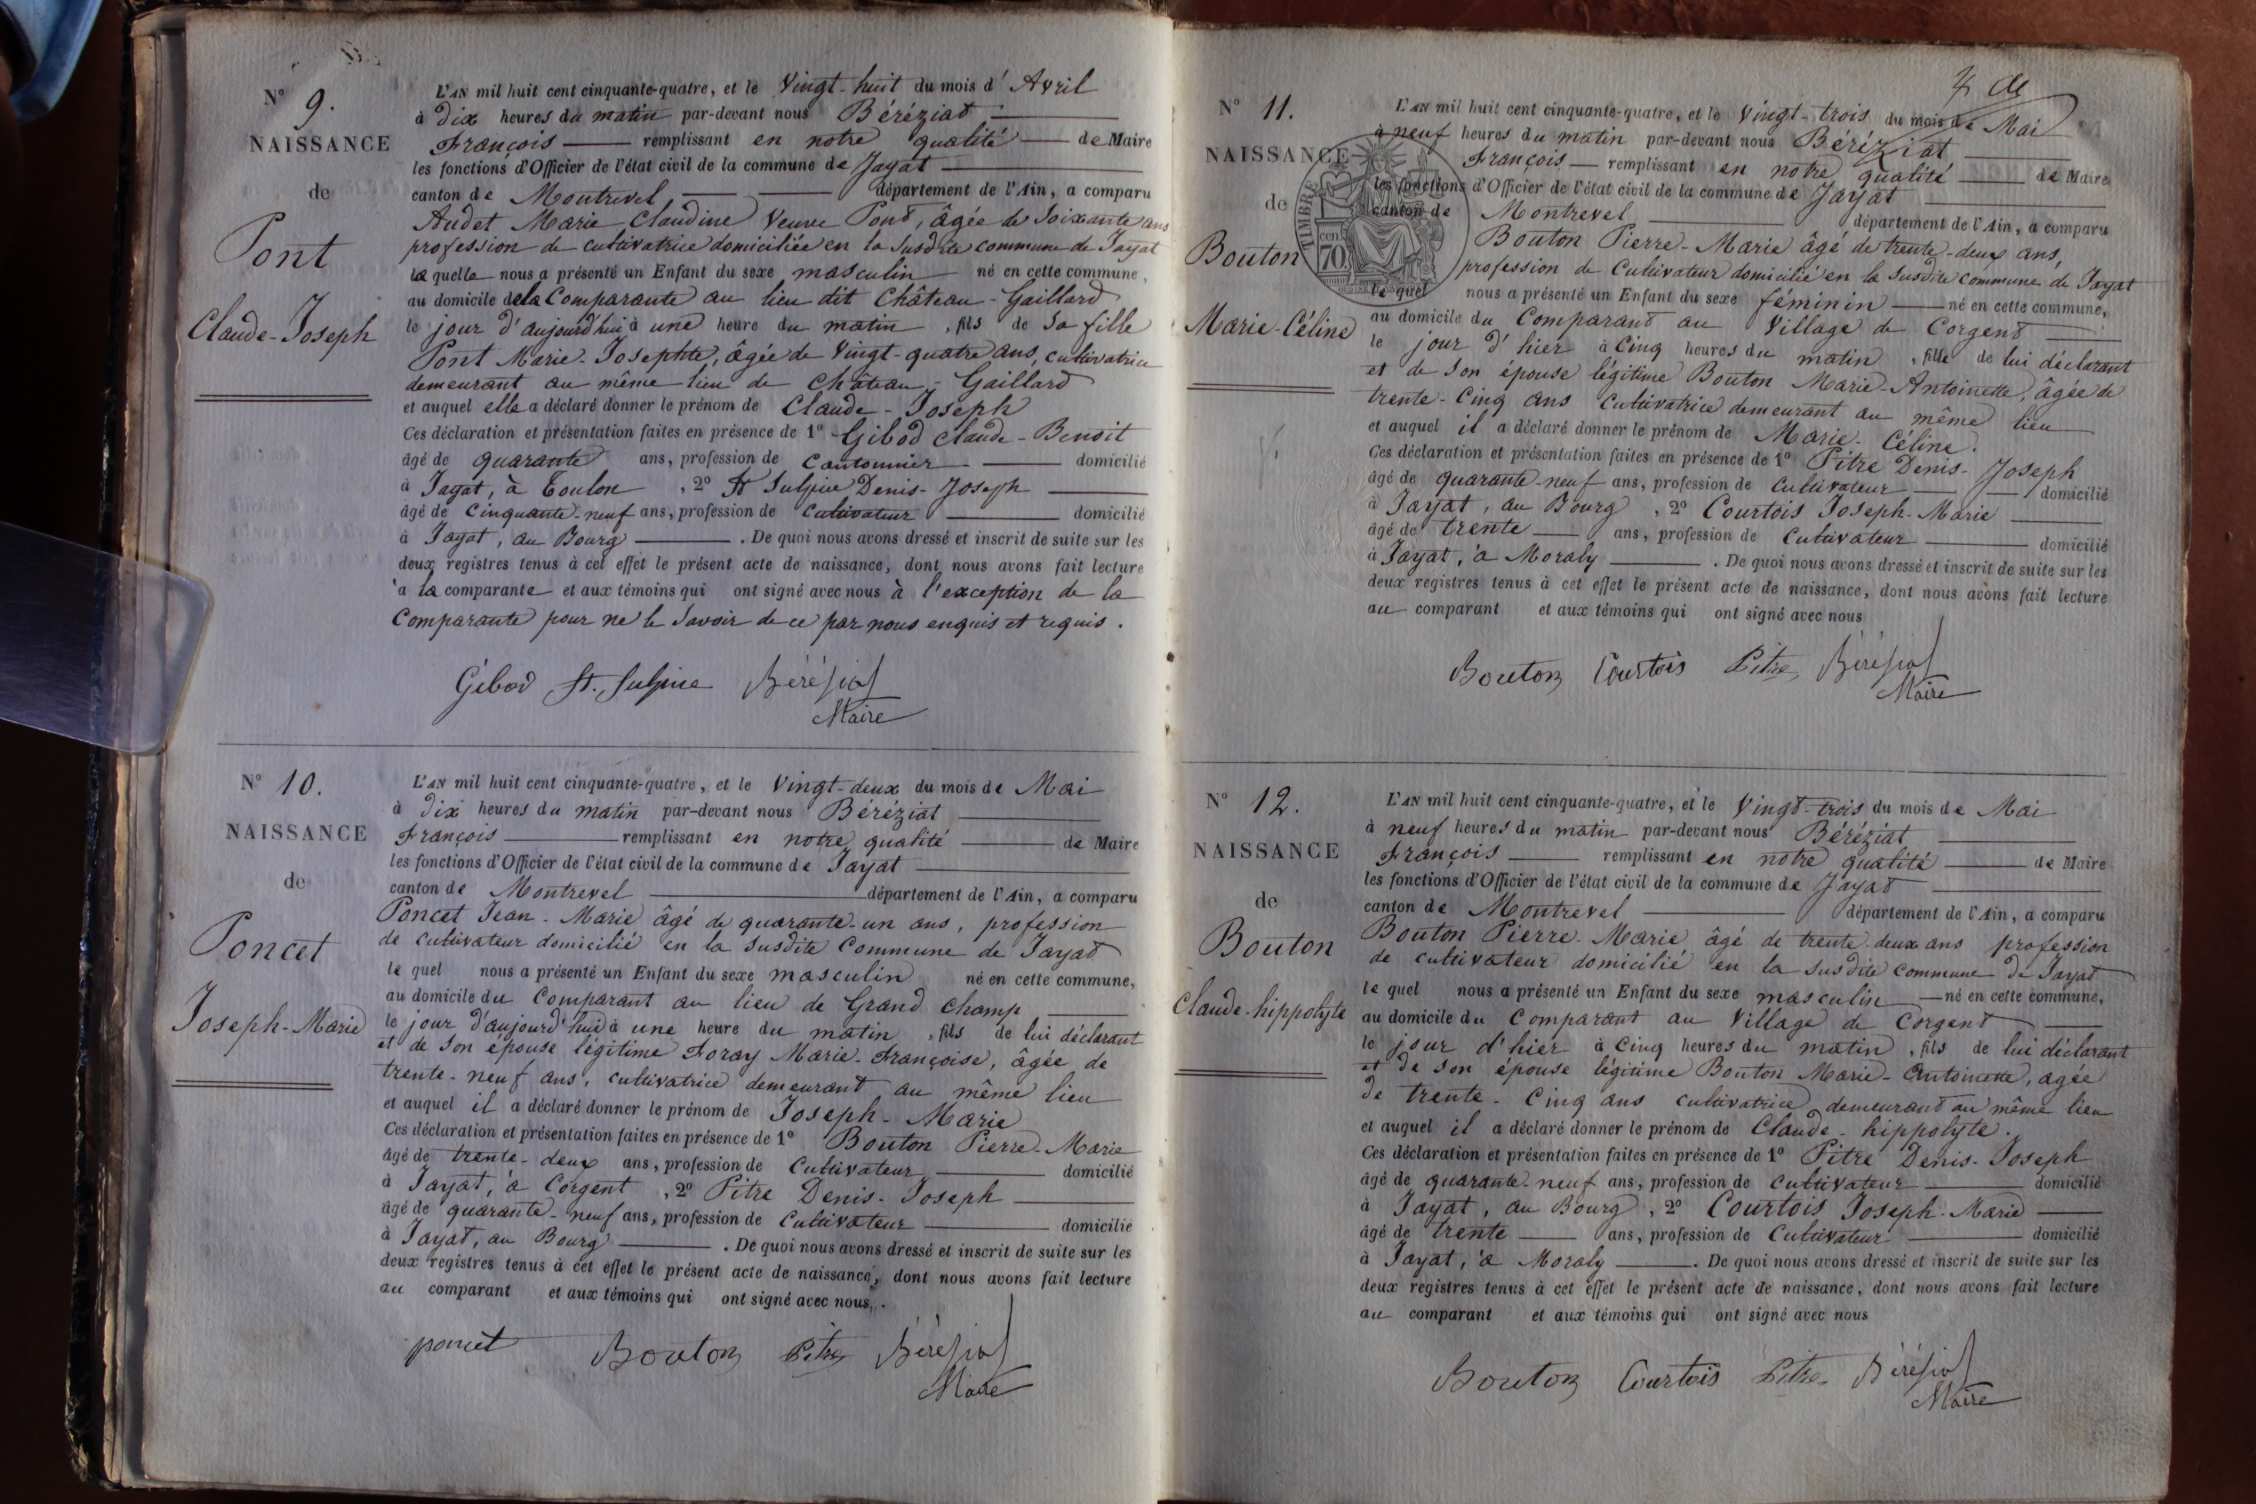 N° 9.
NAISSANCE
de
Pont
Claude-Joseph
L'AN mil huit cent cinquante-quatre, et le Vingt-huit du mois d' Avril
à dix heures du matin par-devant nous Béréziat
François remplissant en notre qualité de Maire
les fonctions d'Officier de l'état civil de la commune de Jayat
canton de Montrevel département de l'Ain, a comparu
Audet Marie Claudine Veuve Pont, âgée de Soixante ans
profession de cultivatrice domiciliée en la susdite commune de Jayat
laquelle nous a présenté un Enfant du sexe masculin né en cette commune,
au domicile de la Comparante au lieu dit Château-Gaillard
le jour d'aujourd'hui à une heure du matin, fils de Sa fille
Pont Marie-Josephte, âgée de Vingt-quatre ans, cultivatrice
demeurant au même lieu de Château-Gaillard
et auquel elle a déclaré donner le prénom de Claude-Joseph
Ces déclaration et présentation faites en présence de 1° Gibod Claude-Benoit
âgé de quarante ans, profession de Cantonnier domicilié
à Jayat, à Toulon, 2° St Sulpice Denis-Joseph
âgé de Cinquante-neuf ans, profession de Cultivateur domicilié
à Jayat, au Bourg. De quoi nous avons dressé et inscrit de suite sur les
deux registres tenus à cet effet le présent acte de naissance, dont nous avons fait lecture
à la comparante et aux témoins qui ont signé avec nous à l'exception de la
Comparante pour ne le savoir de ce par nous enquis et requis.
Gibod St. Sulpice Béréziat
Maire
N° 10.
NAISSANCE
de
Poncet
Joseph-Marie
L'AN mil huit cent cinquante-quatre, et le Vingt-deux du mois de Mai
à dix heures du matin par-devant nous Béréziat
François remplissant en notre qualité de Maire
les fonctions d'Officier de l'état civil de la commune de Jayat
canton de Montrevel département de l'Ain, a comparu
Poncet Jean-Marie âgé de quarante-un ans, profession
de cultivateur domicilié en la susdite Commune de Jayat
lequel nous a présenté un Enfant du sexe masculin né en cette commune,
au domicile du Comparant au lieu de Grand Champ
le jour d'aujourd'hui à une heure du matin, fils de lui déclarant
et de son épouse légitime Foray Marie-Françoise, âgée de
trente-neuf ans, cultivatrice demeurant au même lieu
et auquel il a déclaré donner le prénom de Joseph-Marie
Ces déclaration et présentation faites en présence de 1° Bouton Pierre-Marie
âgé de trente-deux ans, profession de Cultivateur domicilié
à Jayat, à Corgent, 2° Pitre Denis-Joseph
âgé de quarante-neuf ans, profession de Cultivateur domicilié
à Jayat, au Bourg. De quoi nous avons dressé et inscrit de suite sur les
deux registres tenus à cet effet le présent acte de naissance, dont nous avons fait lecture
au comparant et aux témoins qui ont signé avec nous.
poncet Bouton Pitre Béréziat
Maire
4 de
N° 11.
NAISSANCE
de
Bouton
Marie-Céline
TIMBRE
cen.
70
L'AN mil huit cent cinquante-quatre, et le Vingt-trois du mois de Mai
à neuf heures du matin par-devant nous Béréziat
François remplissant en notre qualité de Maire
les fonctions d'Officier de l'état civil de la commune de Jayat
canton de Montrevel département de l'Ain, a comparu
Bouton Pierre-Marie âgé de trente-deux ans,
profession de Cultivateur domicilié en la susdite commune de Jayat
lequel nous a présenté un Enfant du sexe féminin né en cette commune,
au domicile du Comparant au Village de Corgent
le jour d'hier à Cinq heures du matin, fille de lui déclarant
et de son épouse légitime Bouton Marie-Antoinette, âgée de
trente-cinq ans cultivatrice demeurant au même lieu
et auquel il a déclaré donner le prénom de Marie-Céline.
Ces déclaration et présentation faites en présence de 1° Pitre Denis-Joseph
âgé de quarante-neuf ans, profession de Cultivateur domicilié
à Jayat, au Bourg, 2° Courtois Joseph-Marie
âgé de trente ans, profession de Cultivateur domicilié
à Jayat, à Moraly. De quoi nous avons dressé et inscrit de suite sur les
deux registres tenus à cet effet le présent acte de naissance, dont nous avons fait lecture
au comparant et aux témoins qui ont signé avec nous
Bouton Courtois Pitre Béréziat
Maire
N° 12.
NAISSANCE
de
Bouton
Claude-hippolyte
L'AN mil huit cent cinquante-quatre, et le Vingt-trois du mois de Mai
à neuf heures du matin par-devant nous Béréziat
François remplissant en notre qualité de Maire
les fonctions d'Officier de l'état civil de la commune de Jayat
canton de Montrevel département de l'Ain, a comparu
Bouton Pierre-Marie âgé de trente-deux ans profession
de cultivateur domicilié en la susdite commune de Jayat
lequel nous a présenté un Enfant du sexe masculin né en cette commune,
au domicile du Comparant au Village de Corgent
le jour d'hier à Cinq heures du matin, fils de lui déclarant
et de son épouse légitime Bouton Marie-Antoinette, agée
de trente-cinq ans cultivatrice demeurant au même lieu
et auquel il a déclaré donner le prénom de Claude-hippolyte.
Ces déclaration et présentation faites en présence de 1° Pitre Denis-Joseph
âgé de quarante-neuf ans, profession de Cultivateur domicilié
à Jayat, au Bourg, 2° Courtois Joseph-Marie
âgé de trente ans, profession de Cultivateur domicilié
à Jayat, à Moraly. De quoi nous avons dressé et inscrit de suite sur les
deux registres tenus à cet effet le présent acte de naissance, dont nous avons fait lecture
au comparant et aux témoins qui ont signé avec nous
Bouton Courtois Pitre Béréziat
Maire